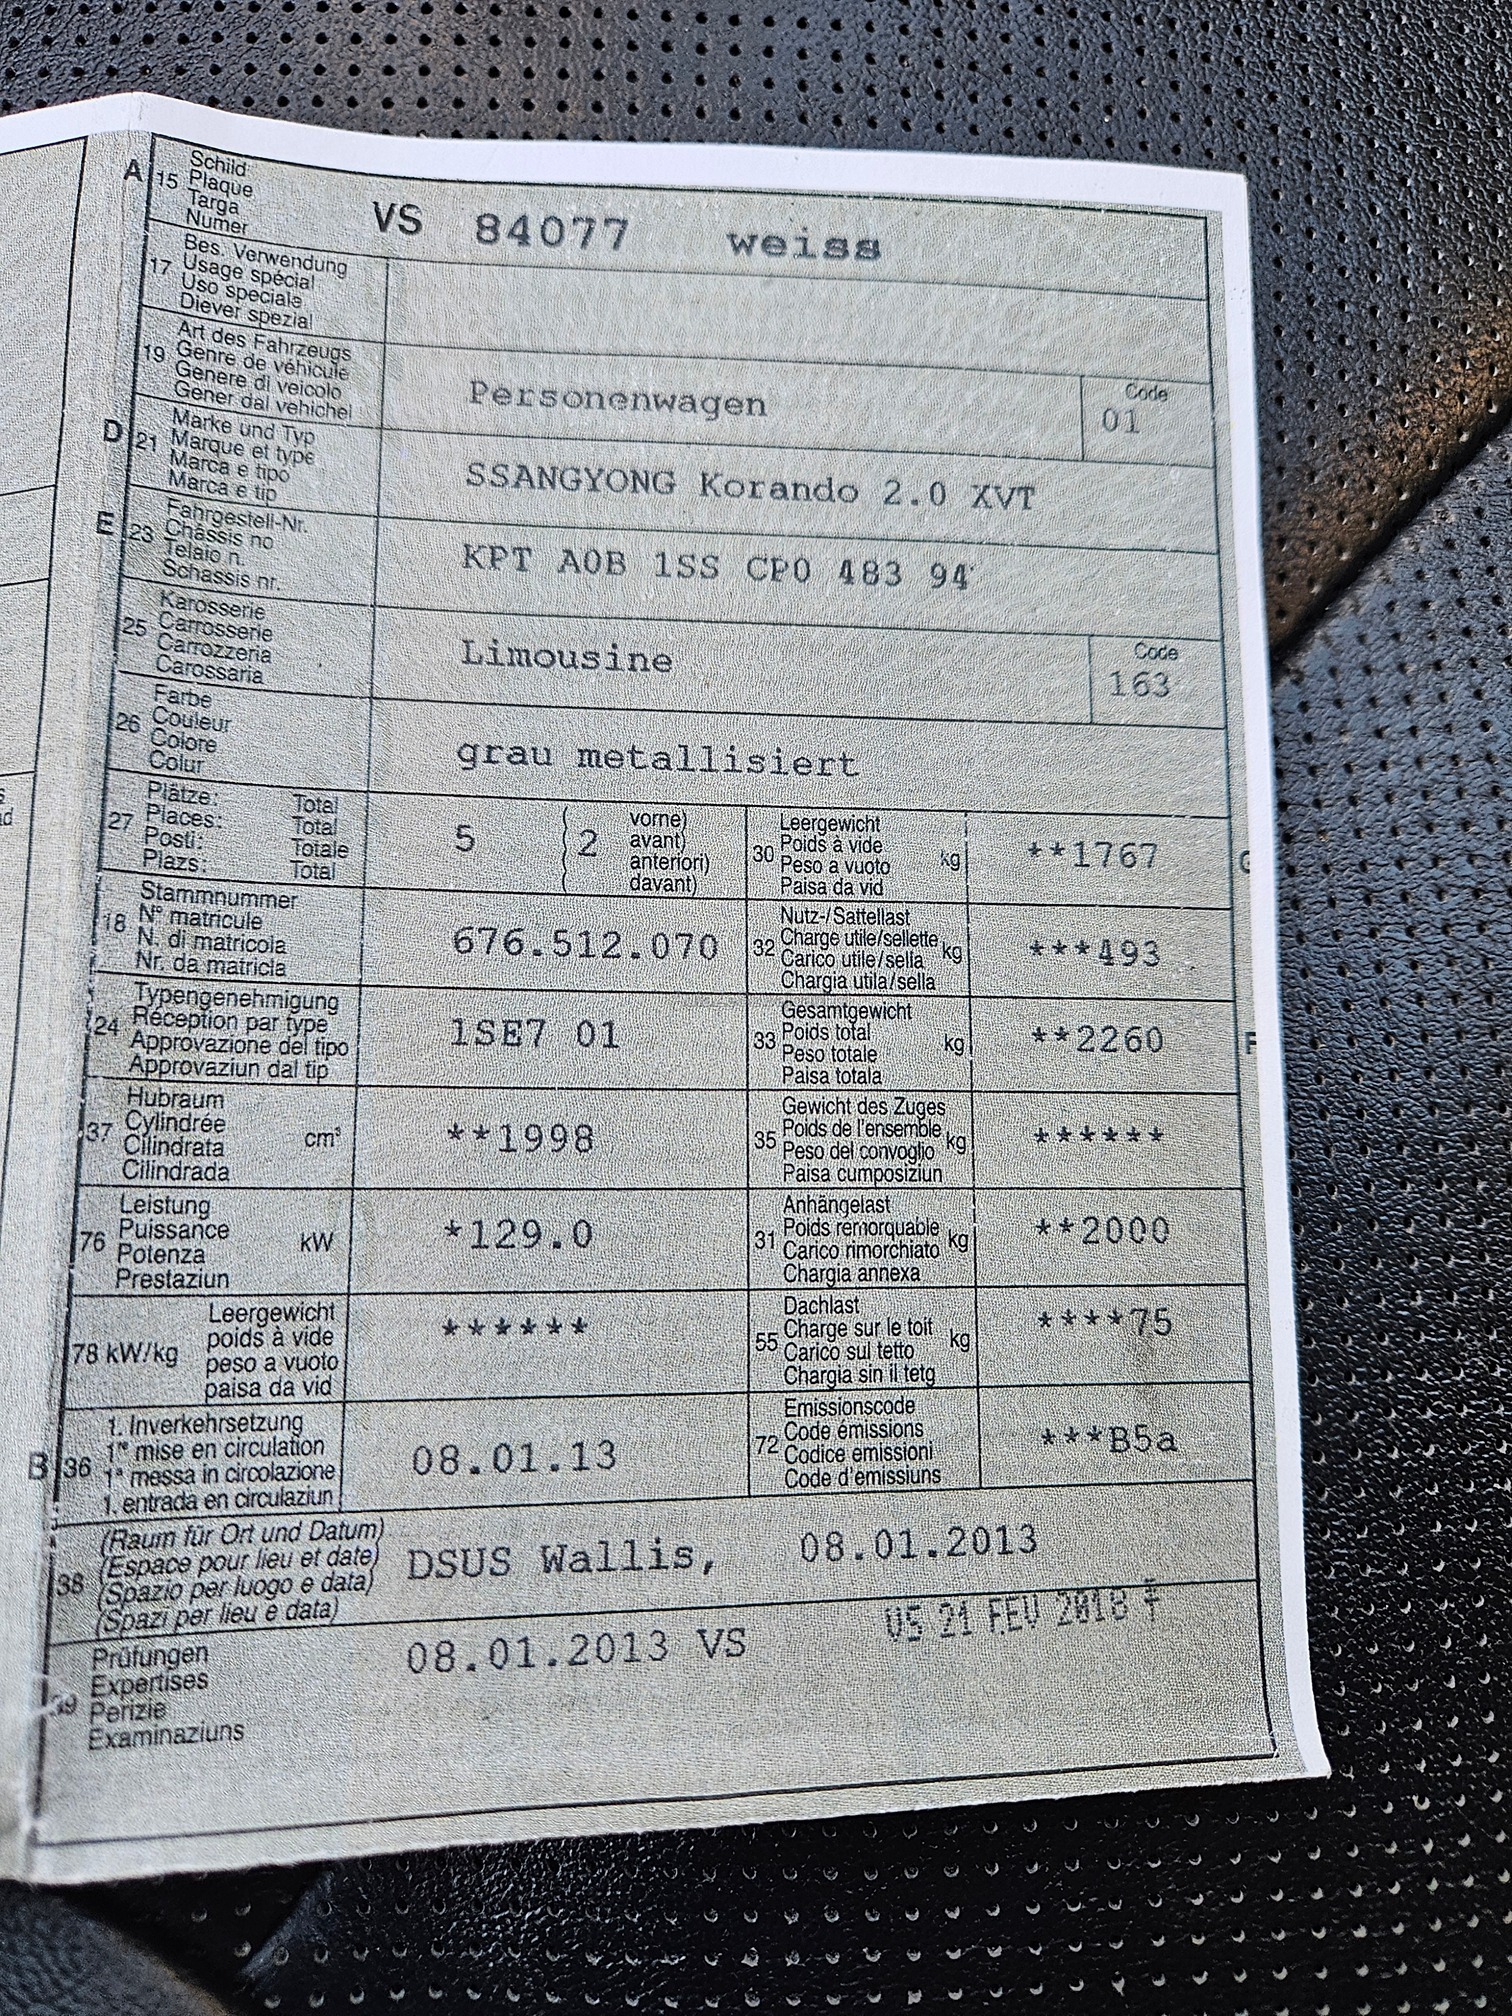 A 15 Schild
Plaque
Targa
Numer
VS 84077 weiss
17 Bes. Verwendung
Usage spécial
Uso speciale
Diever spezial
19 Art des Fahrzeugs
Genre de véhicule
Genere di veicolo
Gener dal vehichel
Personenwagen
Code
01
D 21 Marke und Typ
Marque et type
Marca e tipo
Marca e tip
SSANGYONG Korando 2.0 XVT
E 23 Fahrgestell-Nr.
Châssis no
Telaio n.
Schassis nr.
KPT A0B 1SS CP0 483 94
25 Karosserie
Carrosserie
Carrozzeria
Carossaria
Limousine
Code
163
26 Farbe
Couleur
Colore
Colur
grau metallisiert
27 Plätze: Total
Places: Total
Posti: Totale
Plazs: Total
5 2 vorne)
avant)
anteriori)
davant)
30 Leergewicht
Poids à vide
Peso a vuoto kg
Paisa da vid
**1767
G
18 Stammnummer
N° matricule
N. di matricola
Nr. da matricla
676.512.070
32 Nutz-/Sattellast
Charge utile/sellette kg
Carico utile/sella
Chargia utila/sella
***493
24 Typengenehmigung
Réception par type
Approvazione del tipo
Approvaziun dal tip
1SE7 01
33 Gesamtgewicht
Poids total
Peso totale kg
Paisa totala
**2260
F
37 Hubraum
Cylindrée
Cilindrata cm³
Cilindrada
**1998
35 Gewicht des Zuges
Poids de l'ensemble kg
Peso del convoglio
Paisa cumposiziun
******
76 Leistung
Puissance
Potenza kW
Prestaziun
*129.0
31 Anhängelast
Poids remorquable kg
Carico rimorchiato
Chargia annexa
**2000
78 kW/kg Leergewicht
poids à vide
peso a vuoto
paisa da vid
******
55 Dachlast
Charge sur le toit kg
Carico sul tetto
Chargia sin il tetg
****75
B 36 1. Inverkehrsetzung
1re mise en circulation
1a messa in circolazione
1. entrada en circulaziun
08.01.13
72 Emissionscode
Code émissions
Codice emissioni
Code d'emissiuns
***B5a
38 (Raum für Ort und Datum)
(Espace pour lieu et date)
(Spazio per luogo e data)
(Spazi per lieu e data)
DSUS Wallis, 08.01.2013
39 Prüfungen
Expertises
Perizie
Examinaziuns
08.01.2013 VS
21 FEV 2018